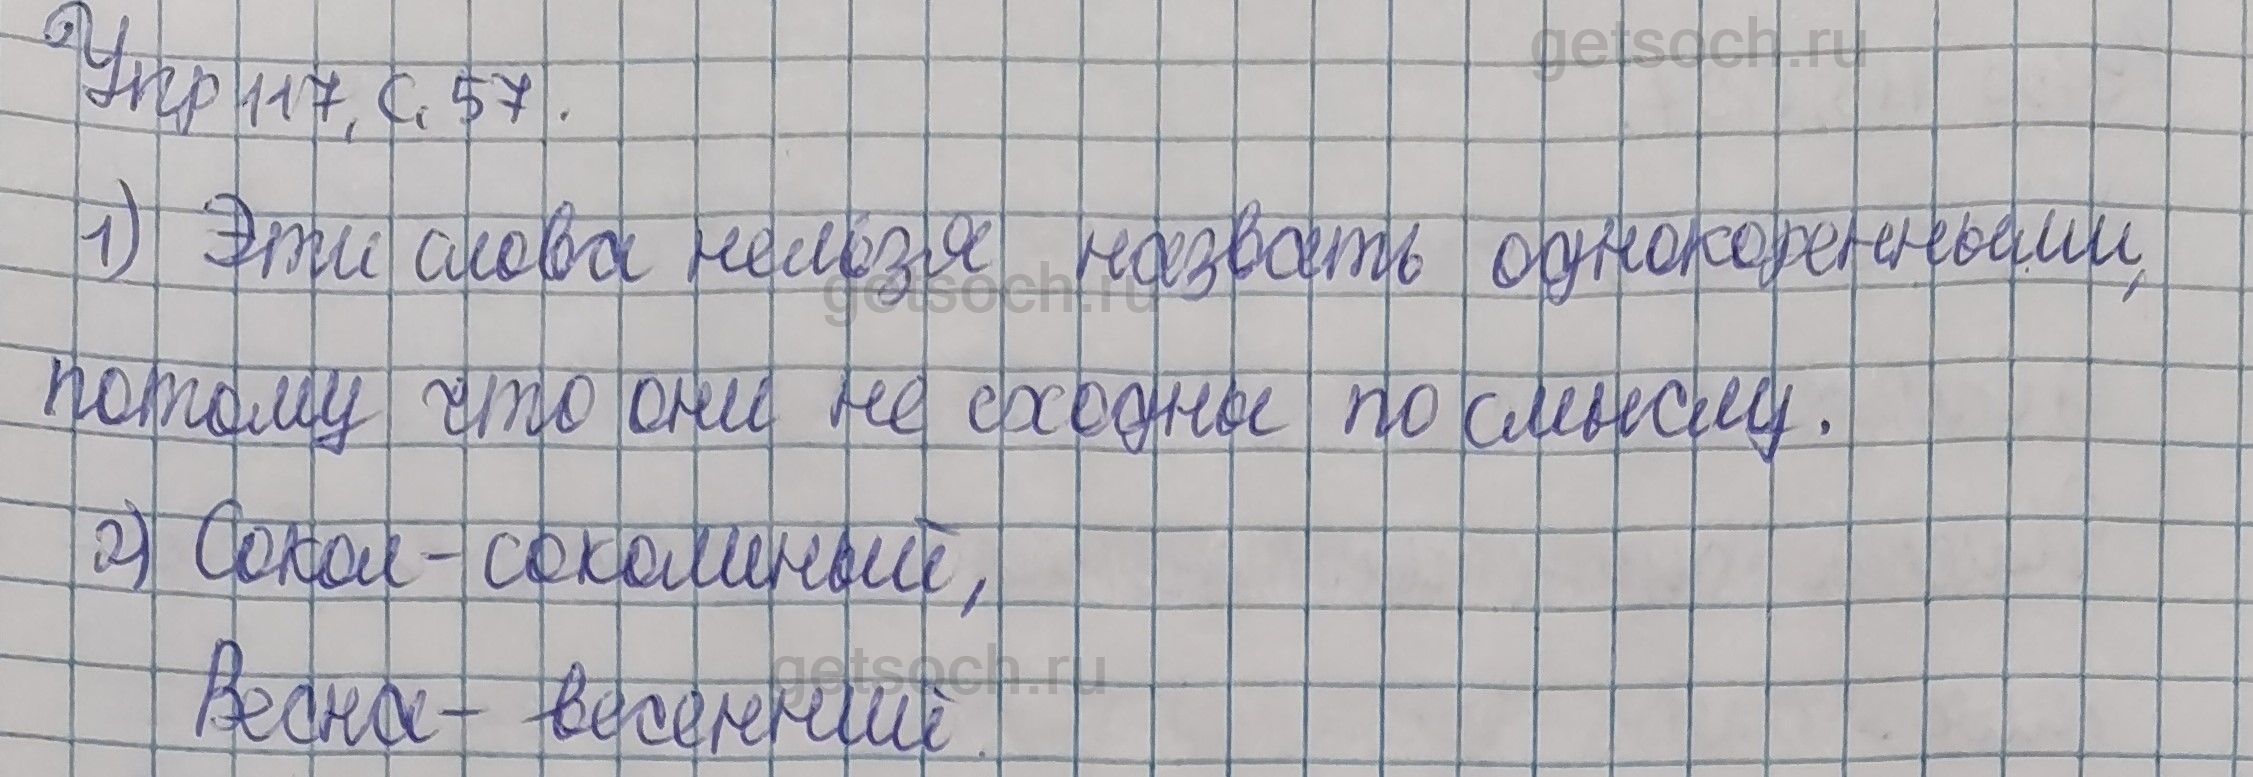 getsoch.ru
Упр 117, с. 57.
1) Эти слова нельзя назвать однокоренными,
getsoch.ru
потому что они не сходны по смыслу.
2) Сокол - соколиный,
getsoch.ru
Весна - весенний.